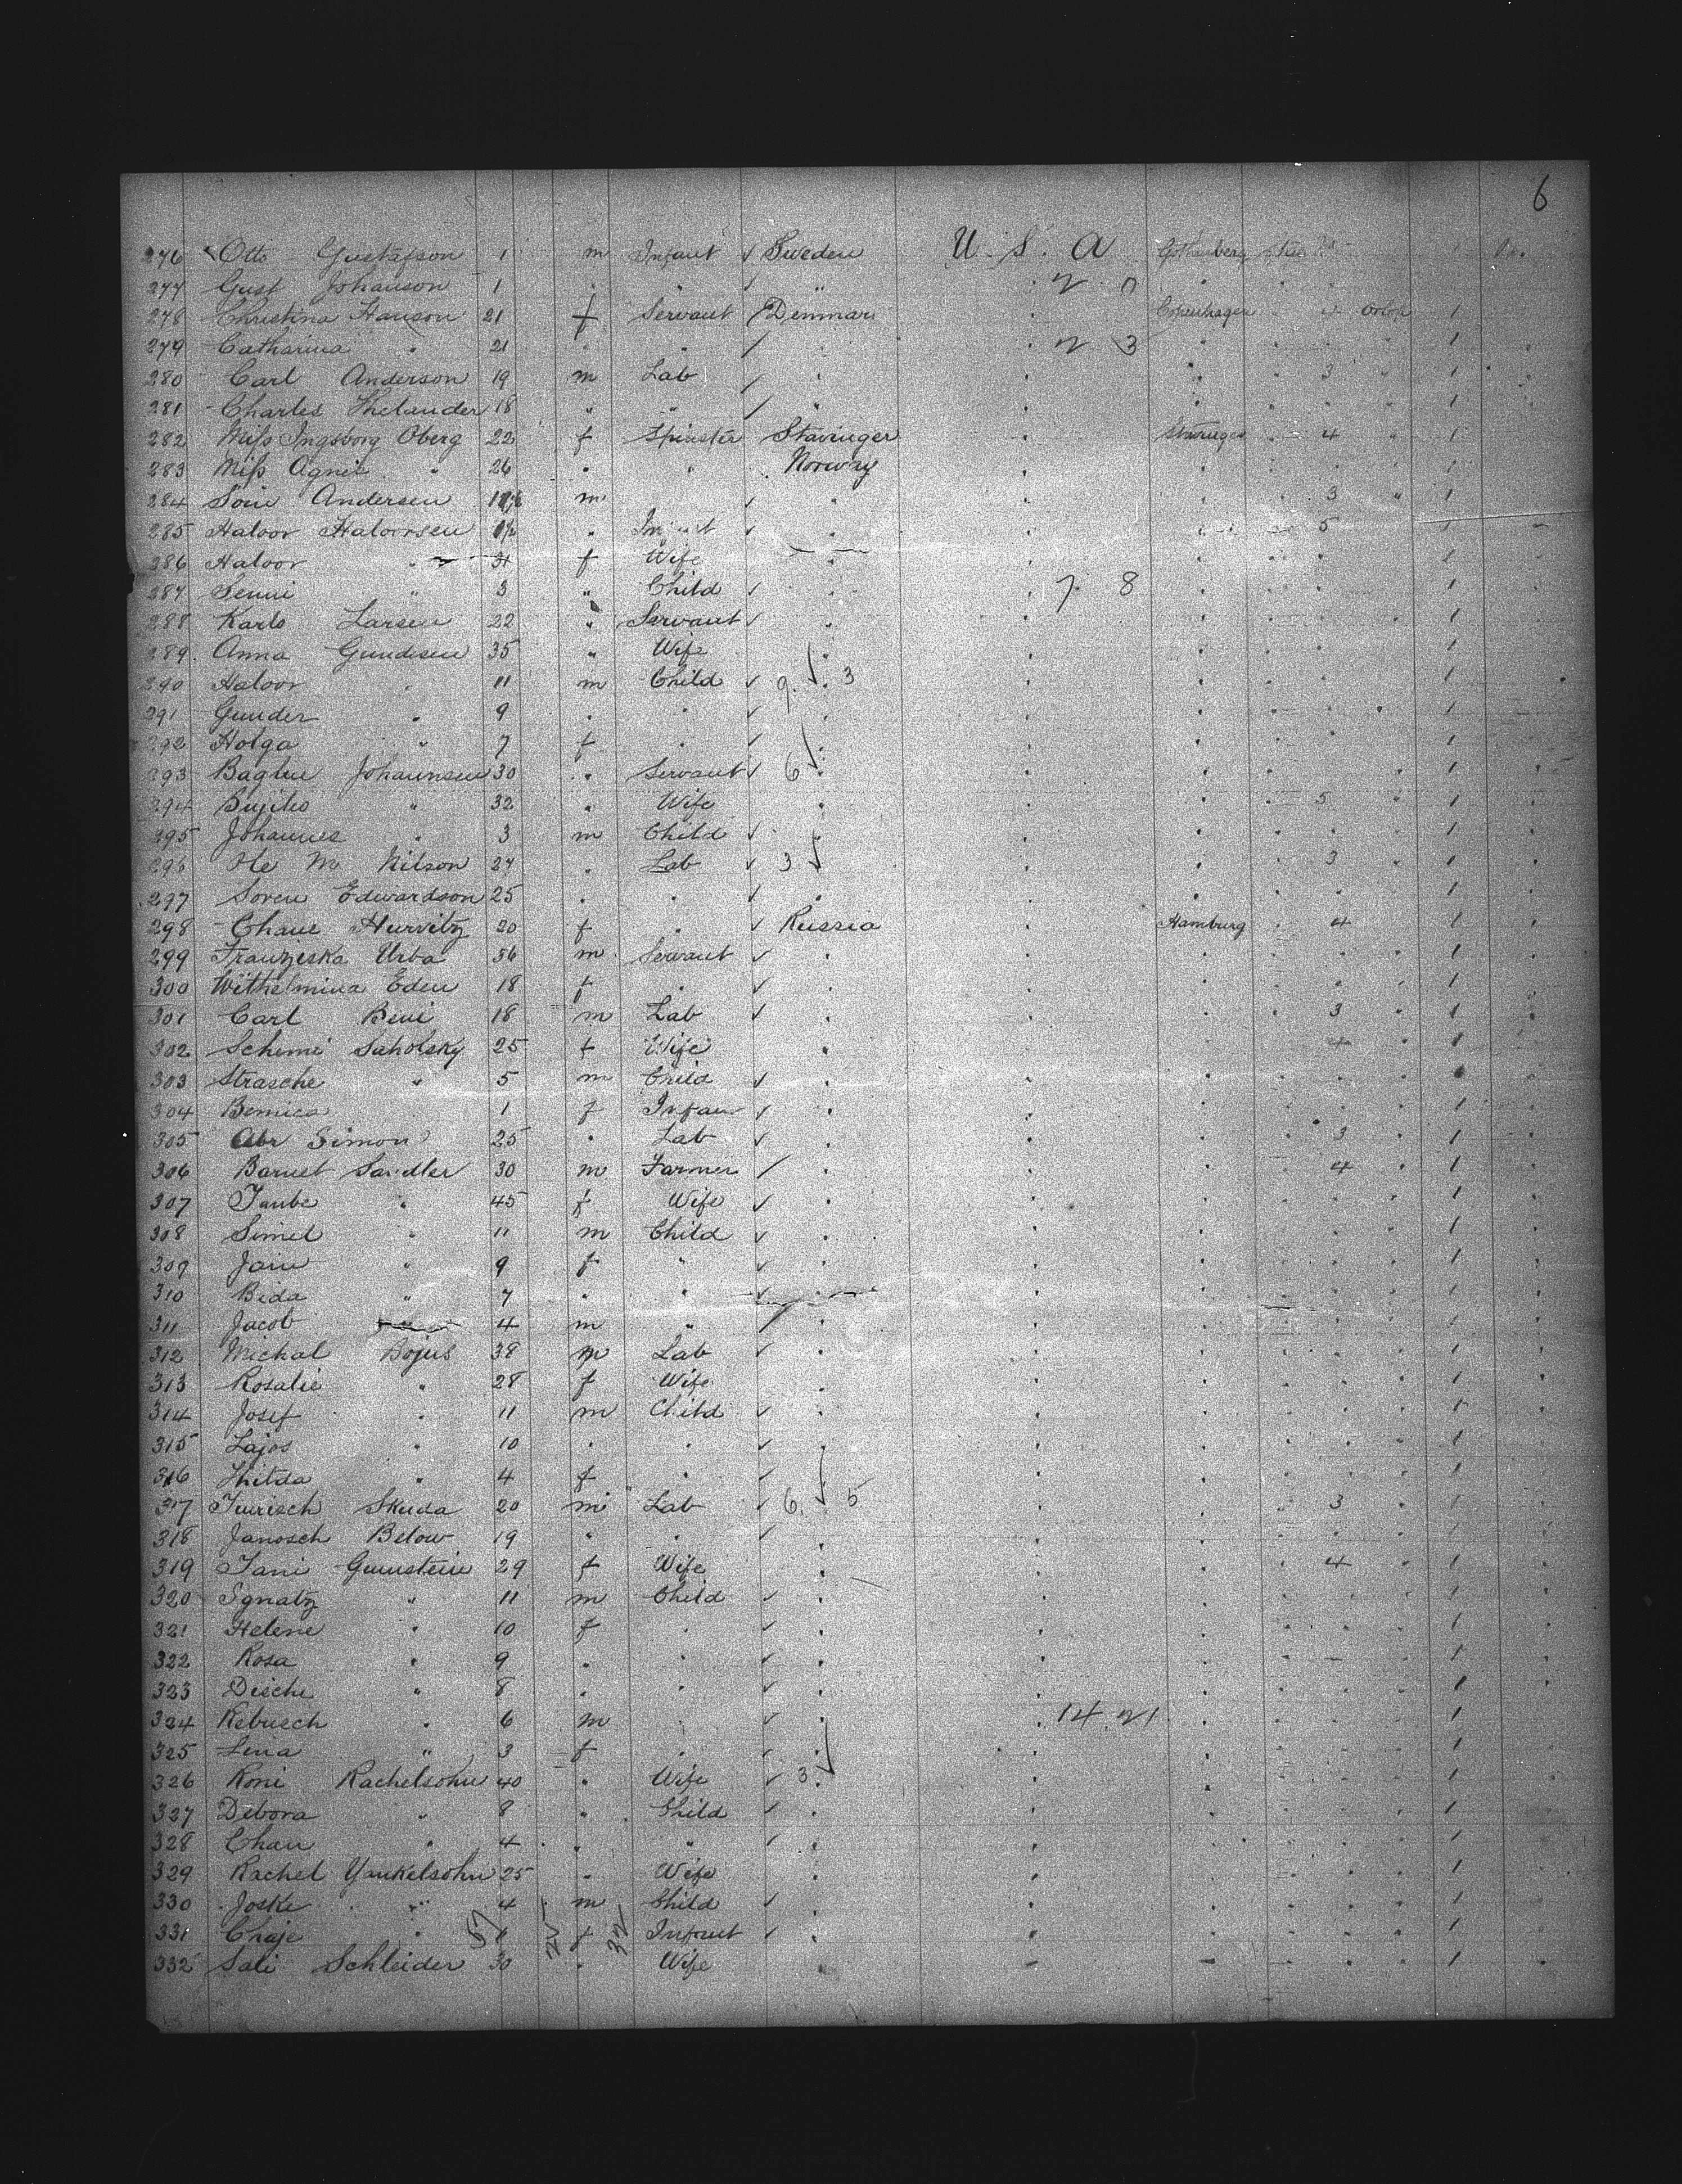 6
276 Otto Gustafson 1 m Infant ✓ Sweden U. S. A Gothenberg
277 Gust Johanson 1 " " ✓ " " 2 0 " " " "
278 Christina Hanson 21 f Servant / Denmar " Copenhagen 4 Orlop 1
279 Catharina " 21 " " / " " 2 3 " " " " 1
280 Carl Anderson 19 m Lab / " " " " 3 " 1
281 Charles Thelander 18 " " / " " " " " " 1
282 Miss Ingsborg Oberg 22 f Spinster Stavinger " Stavinger " 4 " 1
283 Miss Agnes " 26 " " Norway " " " " " 1
284 Andersen m ✓ " " " " 3 " 1
285 Haloor Haloorsen " Infant ✓ " " " " 5 1
286 Haloor " f Wife " " " " " 1
287 Jenni " 3 " Child ✓ " " 7 8 " " " 1
288 Karls Larsen 22 " Servant ✓ " " " " " 1
289 Anna Gundesen 35 " Wife " " " " " 1
290 Haloor " 11 m Child ✓ 9. ✓ 3 " " " " 1
291 Gunder " 9 " " ✓ " " " " " " 1
292 Holga " 7 f " ✓ " " " " " 1
293 Johannsen 30 " Servant ✓ 6 ✓ " " " " " 1
294 " 32 " Wife " " " " 5 " 1
295 Johannes " 3 m Child ✓ " " " " " " 1
296 Ole M Nilson 27 " Lab ✓ 3 ✓ " " " 3 " 1
297 Soren Edwardson 25 " " ✓ " " " " " " 1
298 Chaue Hurvitz 20 f " ✓ Russia " Hamburg " 4 1
299 Franziska Urba 36 m Servant ✓ " " " " " " 1
300 Withelmina Eden 18 f " ✓ " " " " " 1
301 Carl Beni 18 m Lab ✓ " " " " 3 " 1
302 Schemi Saholsky 25 f Wife " " " " 4 " 1
303 Strasche " 5 m Child ✓ " " " " " "
304 1 f Infan ✓ " " " " " " 1
305 Abr Simon 25 " Lab ✓ " " " " 3 " 1
306 Barnet Sandler 30 m Farmer / " " " " 4 " 1
307 Taube " 45 f Wife ✓ " " " " " " 1
308 Simel " 11 m Child ✓ " " " " " " 1
309 " 9 f " ✓ " " " " " " 1
310 Bida " 7 " " ✓ " " " " " " 1
311 Jacob " 4 m " / " " " " " " 1
312 Michal Bojus 38 m Lab ✓ " " " " " " 1
313 Rosalie " 28 f Wife " " " " " " 1
314 Josef " 11 m Child ✓ " " " " " " 1
315 Lajos " 10 " " ✓ " " " " " " 1
316 " 4 f " ✓ " " " " " " 1
317 Skuda 20 m Lab ✓ 6. ✓ 5 " " " 3 " 1
318 Janosch Below 19 " " ✓ " " " " " " 1
319 29 f Wife " " " " 4 " 1
320 Ignatz " 11 m Child ✓ " " " " " " 1
321 Helene " 10 f " ✓ " " " " " " 1
322 Rosa " 9 " " ✓ " " " " " " 1
323 " 8 " " ✓ " " " " " " 1
324 " 6 m " ✓ " 14. 21. " " " " 1
325 Lina " 3 f " ✓ " " " " " " 1
326 Roni Rachelsohn 40 " Wife ✓ 3 ✓ " " " " " 1
327 Debora " 8 " Child ✓ " " " " " " 1
328 Chau " 4 " " ✓ " " " " " " 1
329 Rachel Yankelsohn 25 " Wife " " " " " " 1
330 Joske " 4 m Child ✓ " " " " " " 1
331 Chaje " 57 25 f 32 Infant ✓ " " " " " " 1
332 Sali Schleider 30 " Wife " " " " " " 1